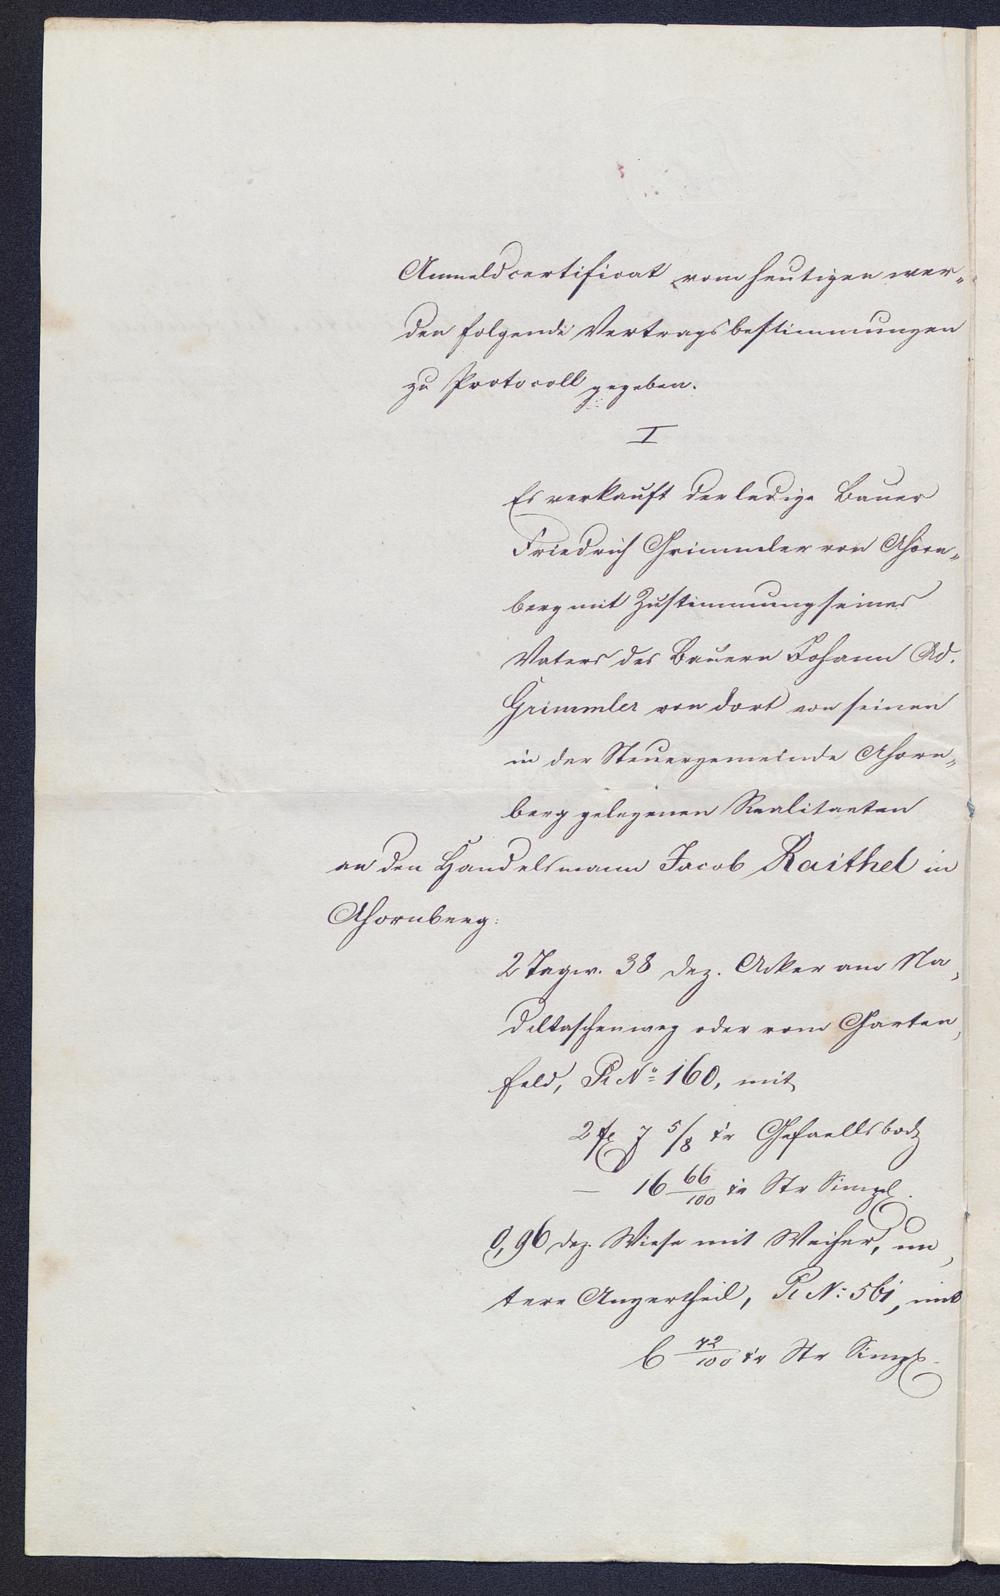 Anmeldcertificat vom heutigen wer-
den folgende Vertragsbestimmungen
zu Protocoll gegeben.
I
Es verkauft der ledige Bauer
Friedrich Grimmler von Ahorn-
berg mit Zustimmung seines
Vaters des Bauern Johann Ad.
Grimmler von dort von seinen
in der Steuergemeinde Ahorn-
berg gelegenen Realitaeten
an den Handelsmann Jacob Raithel in
Ahornberg:
2 Tagw. 38 dez. Acker am Na-
deltaschenweg oder vom Garten-
feld, Pl N° 160, mit
2 fl 7 5/8 kr Gefaellsbodz
— 16 66/100 kr Str Simpl.
0,96 dez. Wiese mit Weiher, un-
tere Angertheil, Pl N: 561, mit
6 72/100 kr Str Simpl.